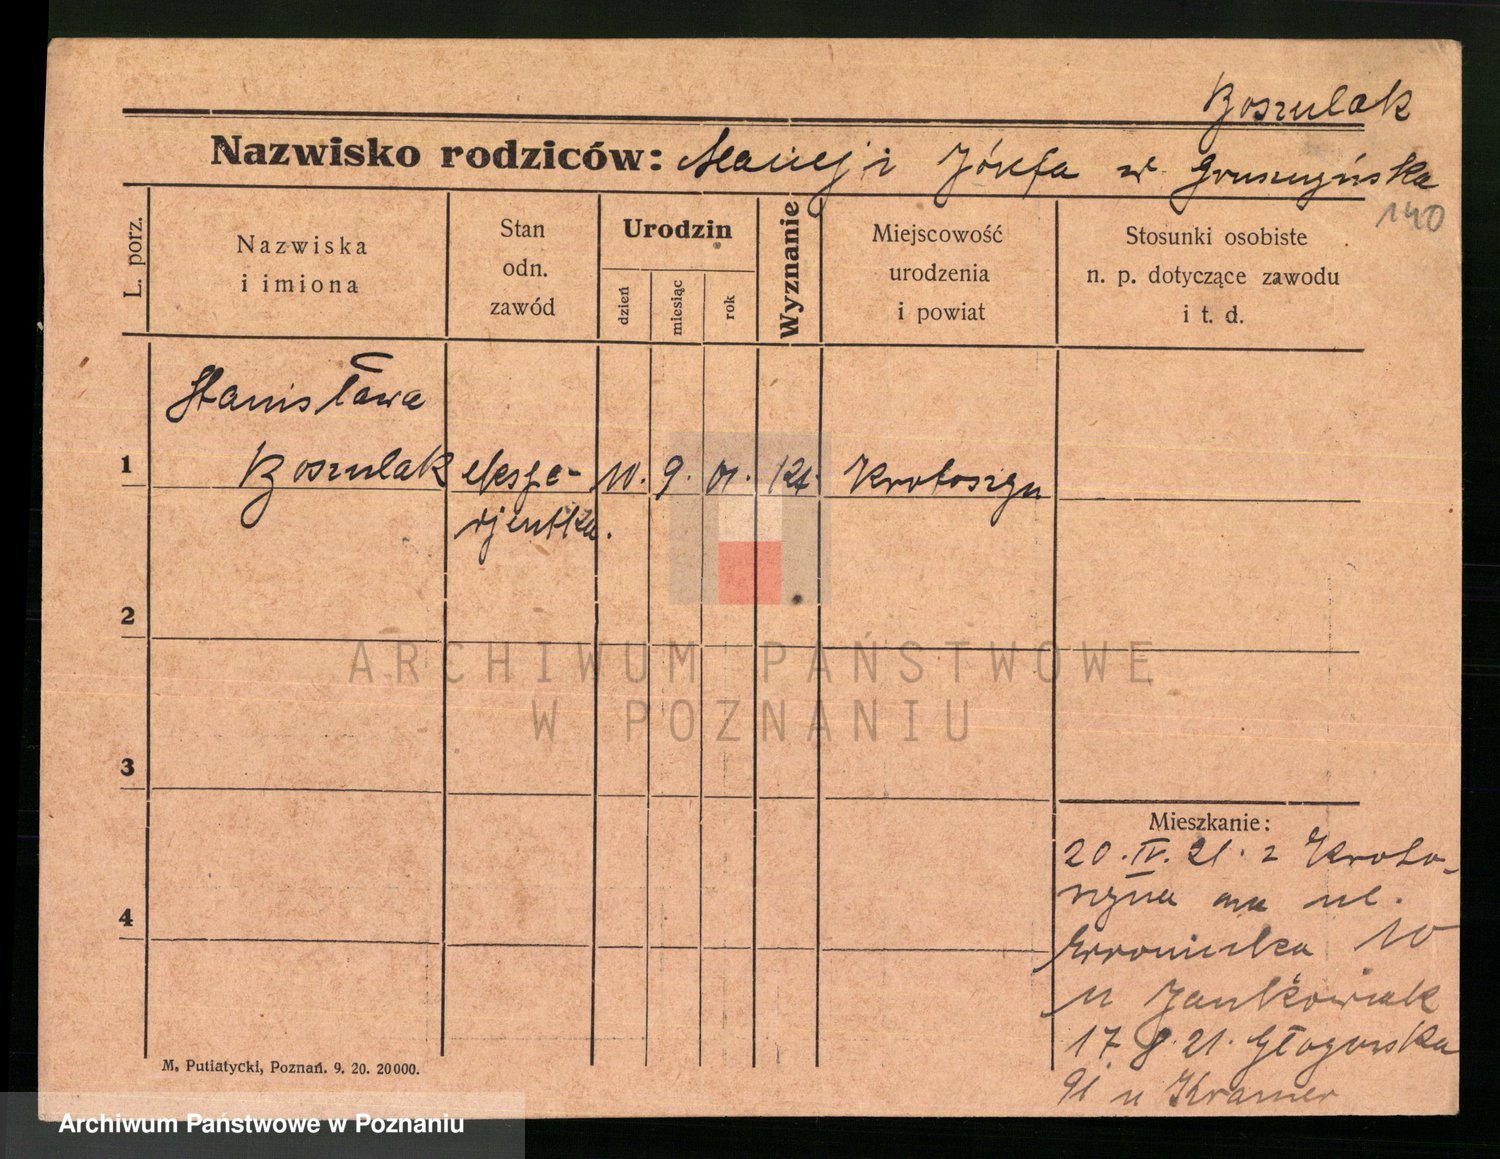 Boszulak
Nazwisko rodziców: Maciej i Józefa w Gruszczyńska
140
L. porz.
Nazwiska
i imiona
Stan
odn.
zawód
Urodzin
dzień
miesiąc
rok
Wyznanie
Miejscowość
urodzenia
i powiat
Stosunki osobiste
n. p. dotyczące zawodu
i t. d.
Stanisława
1 Boszulak ekspe- 10. 9. 01. kat. Krotoszyn
djentka.
2
3
4
Mieszkanie:
20.IV.21. z Kroto-
szyna na ul.
10
u Jankowiak
17 8 21. Głogowska
91 u Kramer
M. Putiatycki, Poznań. 9. 20. 20000.
ARCHIWUM PAŃSTWOWE
W POZNANIU
Archiwum Państwowe w Poznaniu